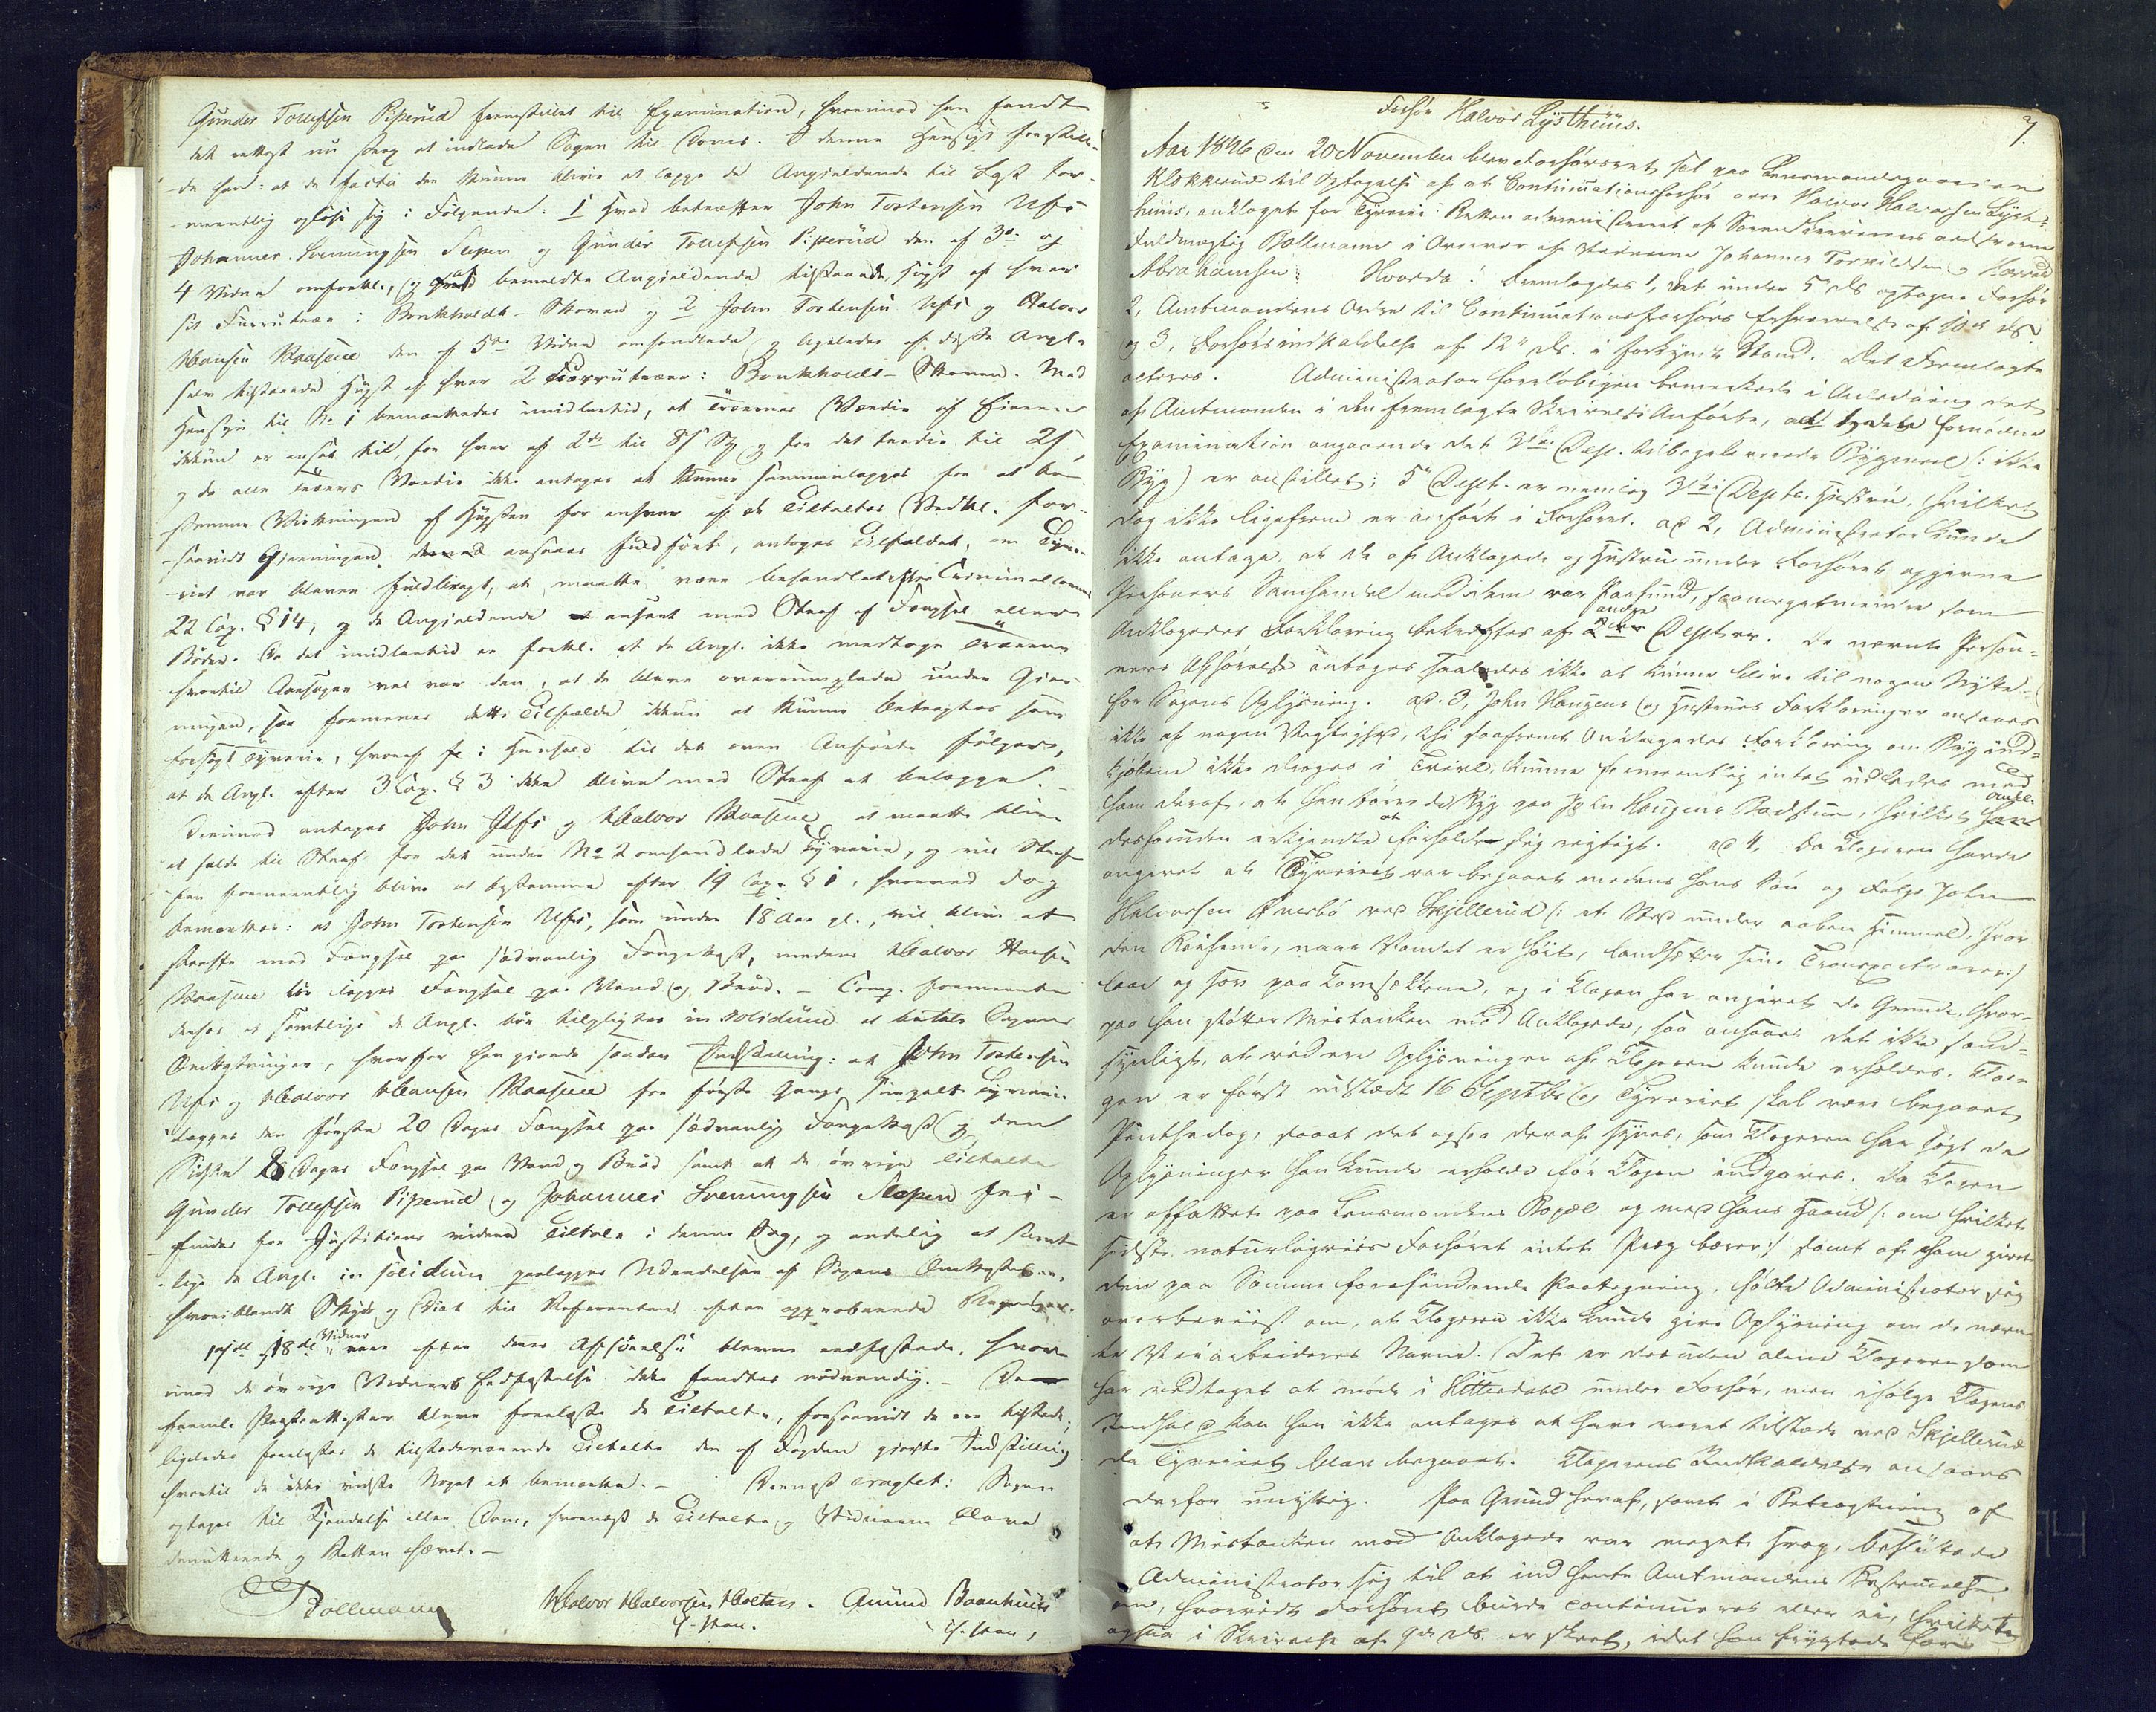 Gunder Tollefsen Piperud fremstillet til Examination, hvorimod han fandt
det rettest nu strax at indlade Sagen til Doms. I denne Hensigt fremstille-
de han: at de facta der kunne blive at lægge de Angjeldende til Last for-
meentlig opløse sig i Følgende: 1 Hvad betræffer John Tostensen Ufs
Johannes Svenungsen Sagen og Gunder Tollefsen Piperud den af 3de og
4 Vidne omforkl., og bemeldte Angjeldende tilstaaede, hugst af hver
sit Furrutræe i Bonkholdt-Skoven og 2 John Tostensen Ufs og Halvor
Hansen Maasene den af 5te Vidne omhandlede og ligeledes af disse Angl.
selv tilstaaede Hugst af hver 2 Furrutræer i Bonkholdt-Skoven. Med
Hensyn til No 1 bemærkedes imidlertid, at Træernes Værdie af Eieren
ikkun er ansat til, for hver af 2de til og for det tredie til
og da alle Træers Værdie ikke antages at kunne sammenlægges for at be-
stemme Virkningen af Hugsten for enhver af de Tiltalte Vedk. for-
saavidt Gjerningen ansees fuldført, antages Tilfældet, om Tyve-
riet var bleven fuldbragt, at maatte være behandlet efter Criminallovens
22 Cap. § 14, og de Angjeldende anseet med Straf af Fængsel eller
Bøder. Da det imidlertid er forkl. at de Angl. ikke medtoge Træerne
hvortil Aarsagen vel var den, at de bleve overrumplede under Gjer-
ningen, saa formenes dette Tilfælde ikkun at kunne betragtes som
forsøgt Tyverie, hvoraf Henhold til det oven Anførte følger,
at de Angl. efter 3 Cap. § 3 ikke blive med Straf at belægge.
Derimod antages John Ufs og Halvor Maasene at maatte blive
at fælde til Straf for det under No 2 omhandlede Tyverie, og vil Straf-
fen formeentlig blive at bestemme efter 19 Cap. § 1, hvorved dog
bemærkes: at John Tostensen Ufs, som under 18 Aar gl., vil blive at
straffe med Fængsel paa sædvanlig Fangekost, medens Halvor Hansen
Maasene bør lægges Fængsel paa Vand og Brød. - Comp. formeente
derhos at samtlige de Angl. bør tilpligtes in solidum at betale Sagens
Omkostninger, hvorfor han gjorde saadan Indstilling: at John Tostensen
Ufs og Halvor Hansen Maasene for første Gang simpelt Tyverie
ilægges den første 20 Dages Fængsel paa sædvanlig Fangekost og den
Sidste 8 Dages Fængsel paa Vand og Brød samt at de øvrige Tiltalte
Gunder Tollefsen Piperud og Johannes Svenungsen Sagen fri-
findes for Justitiens videre Tiltale i denne Sag, og endelig at samt-
lige de Angl. in solidum paalægges Udredelsen af Sagens Omkostninger,
hvoriblandt Skyds og Diæt til Referenten efter approberende Regning.
17de og 18de Vidner vare efter deres Afhørelse blevne eedfæstede, hvor-
imod de øvrige Vidners Eedfæstelse ikke fandtes nødvendig. -
freml. Præsteattester bleve forelæste de Tiltalte, forsaavidt de ere tilstede;
ligeledes forelæstes de tilstedeværende Tiltalte den af Fogden gjorte Indstilling
hvortil de ikke vidste Noget at bemærke. - Dernæst eragtet: Sagen
optages til Kjendelse eller Dom, hvornæst de Tiltalte og Vidnerne bleve
demitterede og Retten hævet. -
Bollmann Halvor Halvorsen Holtan. Amund Baanhuus
Forhør Halvor Lysthuus. 7.
Aar 1846 den 20 November blev Forhørsret sat paa Lensmandsgaarden
Klokkerud til Optagelse af et Continuationsforhør over Halvor Halvorsen Lyst-
huus, anklaget for Tyverie. Retten administreret af Sorenskriverens edsvorne
Fuldmægtig Bollmann i Overvær af Vidnerne Johannes Torvildsen og
Abrahamsen. Hvorda: Fremlagdes 1, det under 5 ds optagne Forhør
2, Amtmandens Ordre til Continuationsforhørs Erhvervelse af 10de ds.
og 3, Forhørsindkaldelse af 12te ds. i forkyndt Stand. Det Fremlagte
acteres. Administrator foreløbigen bemærkede i Anledning det
af Amtmanden i den fremlagte Skrivelse Anførte, ad 1, fornøden
Examination angaaende det 3die Depl. tilbageleverede Bygmeel (: ikke
Byg) er anstillet; 5te Deplt. er nemlig 3die Depts. Hustru, hvilket
dog ikke ligefrem er anført i Forhøret. ad 2, Administrator kunde
ikke antage, at de af Anklagede og Hustru under Forhøret opgivne
Personers Samhandel med dem var Paafund, saameget mindre som
Anklagedes Forklaring bekræftes af andre Depter. De nævnte Person-
ners Afhørelse antages saaledes ikke at kunne blive til nogen Nytte
for Sagens Oplysning. ad. 3, John Haugens og Hustrues Forklaringer ansaaes
ikke af nogen Vigtighed, thi saafremt Anklagedes Forklaring om Byg ind-
kjøbene ikke drages i Tvivl, kunne formeentlig intet udledes med
ham deraf, at han tørrede Byg paa John Haugens Badstue, hvilket
desforuden erkjendte at forholde sig rigtigt. ad 4, Da Klageren havde
angivet at Tyveriet var begaaet medens hans Søn og Følge John
Halvorsen Øvrebø ved Skjellerud (: et Sted under aaben Himmel, hvor
den Reisende, naar Vandet er høit, landsætter sine Transportvarer:)
laae og sov paa Kornsækkene, og i Klagen har angivet de Grunde, hvor-
paa han støtter Mistanken mod Anklagede, saa ansaaes det ikke sand-
synligt, at videre Oplysninger af Klageren kunde erholdes. Kla-
gen er først udstædt 16 Septbr. og Tyveriet skal være begaaet
Pintsedag, saaat det ogsaa deraf synes, som Klageren har søgt de
Oplysninger han kunde erholde før Klagen indgaves. Da Klagen
er affattet paa Lensmandens Bopæl og med hans Haand (: om hvilket
sidste naturligviis Forhøret intet Præg bærer:) samt af ham givet
den paa Samme forefindende Paategning, holdt Administrator sig
overbeviist om, at Klageren ikke kunde give Oplysning om de nævn-
te Veiarbeideres Navne. Det er desuden alene Klageren som
har vedtaget at møde i Hitterdahl under Forhør, men ifølge Klagens
Indhold kan han ikke antages at have været tilstede ved Skjellerud
da Tyveriet blev begaaet. Klagerens Indkaldelse ansaaes
derfor unyttig. Paa Grund heraf, samt i Betragtning af
at Mistanken mod Anklagede var meget svag, besluttede
Administrator sig til at indhente Amtmandens Bestemmelse
om, hvorvidt Forhøret burde continueres eller ei, hvilket
ogsaa i Skrivelse af 9de ds. er skeet, idet han frygtede for